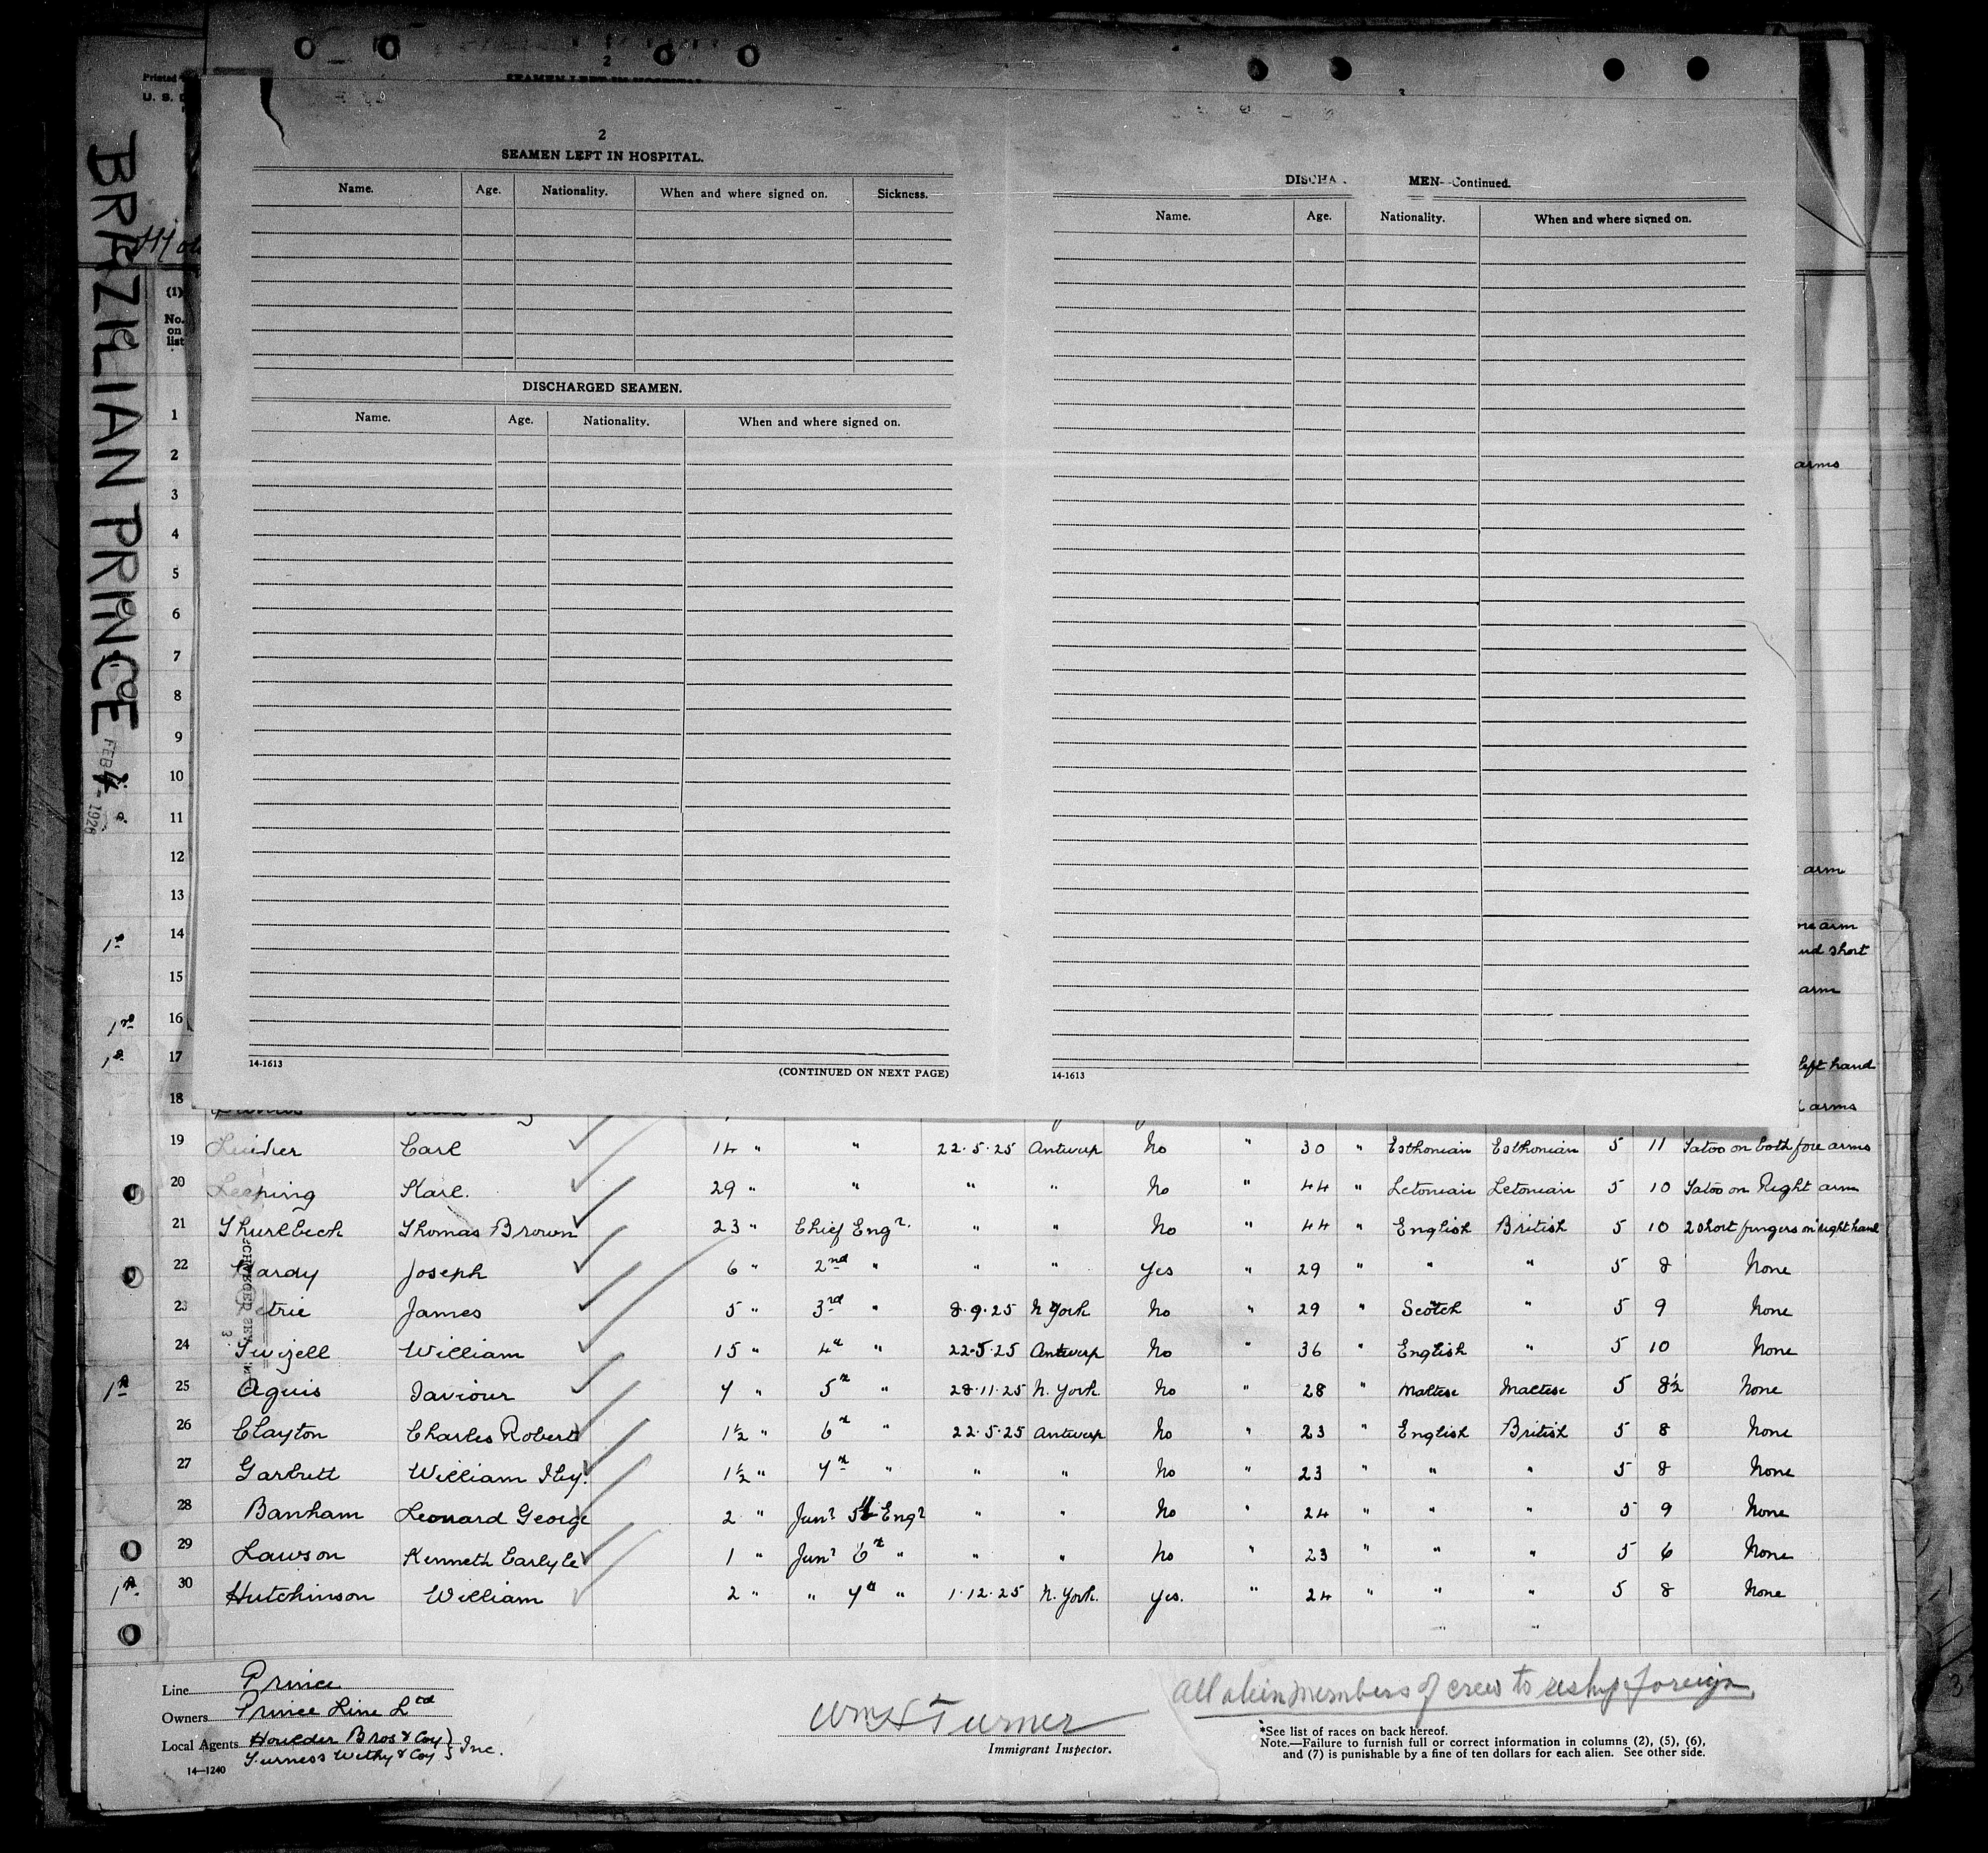 BRAZILIAN PRINCE
FEB 4 - 1926
Printed
U. S.
2
2
SEAMEN LEFT IN HOSPITAL.
Name. Age. Nationality. When and where signed on. Sickness.
DISCHARGED SEAMEN.
Name. Age. Nationality. When and where signed on.
14-1613
(CONTINUED ON NEXT PAGE)
3
DISCHA MEN-Continued.
Name. Age. Nationality. When and where signed on.
14-1613
(1)
No. on list
1
2 arms
3
4
5
6
7
8
9
10
11
12
13 arm
14
arm
short
15
arm
16
17 left hand
18 arms
19 Carl 14 " " 22.5.25 Antwerp No " 30 " Esthonian Esthonian 5 11 Tatoo on both fore arms
20 Leeping Karl. 29 " " " " No " 44 " Letonian Letonian 5 10 Tatoo on Right arm
21 Thurlbeck Thomas Brown 23 " Chief Engr. " " No " 44 " English British 5 10 2 short fingers on right hand
22 Hardy Joseph 6 " 2nd " " " Yes " 29 " " " 5 8 None
23 Petrie James 5 " 3rd " 8.9.25 N York No " 29 " Scotch " 5 9 None
24 Twizell William 15 " 4th " 22.5.25 Antwerp No " 36 " English " 5 10 None
25 Aguis Saviour 7 " 5th " 28.11.25 N. York No " 28 " Maltese Maltese 5 8½ None
26 Clayton Charles Robert 1½ " 6th " 22.5.25 Antwerp No " 23 " English British 5 8 None
27 Garbutt William 1½ " 7th " " " No " 23 " " " 5 8 None
28 Banham Leonard George 2 " Junr 5th Engr " " No " 24 " " " 5 9 None
29 Lawson Kenneth Carlyle 1 " Junr 6th " " " No " 23 " " " 5 6 None
30 Hutchinson William 2 " " 7th " 1.12.25 N. York. Yes. " 24 " " " 5 8 None
" "
Line Prince
Owners Prince Line Ltd
Local Agents Houlder Bros & Coy } Inc.
Furness Withy & Coy
14—1240
Wm H Turner
Immigrant Inspector.
All alein members of crew to reship foreign.
*See list of races on back hereof.
Note.—Failure to furnish full or correct information in columns (2), (5), (6),
and (7) is punishable by a fine of ten dollars for each alien. See other side.
3